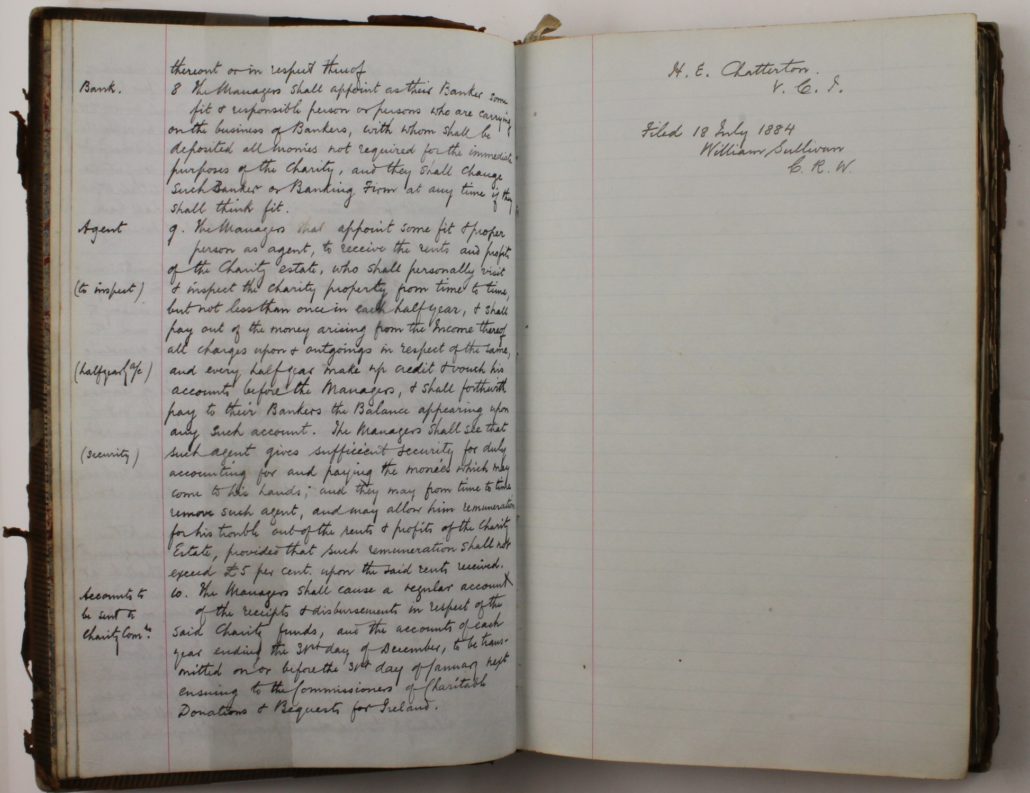 thereont or in respect thereof
Bank.
8 The Managers shall appoint as their Banker some
fit & responsible person or persons who are carrying
on the business of Bankers, with whom shall be
deposited all monies not required for the immediate
purposes of the Charity, and they shall change
such Banker or Banking Firm at any time if they
shall think fit.
Agent
9. The Managers shall appoint some fit & proper
person as agent, to receive the rents and profits
of the Charity estate, who shall personally visit
(to inspect)
& inspect the Charity property from time to time,
but not less than once in each half year, & shall
pay out of the money arising from the Income thereof
all charges upon & outgoings in respect of the same,
(half yearly a/c)
and every half year make up credit & vouch his
accounts before the Managers, & shall forthwith
pay to their Bankers the Balance appearing upon
any such account. The Managers shall see that
(Security)
such agent gives sufficient security for duly
accounting for and paying the monies which may
come to his hands; and they may from time to time
remove such agent, and may allow him remuneration
for his trouble out of the rents & profits of the Charity
Estate, provided that such remuneration shall not
exceed £5 per cent. upon the said rents received.
Accounts to
be sent to
Charity Comrs.
10. The Managers shall cause a regular account
of the receipts & disbursements in respect of the
said Charity funds, and the accounts of each
year ending the 31st day of December, to be trans-
mitted on or before the 31st day of January next
ensuing to the Commissioners of Charitable
Donations & Bequests for Ireland.
H. E. Chatterton.
V. C. I.
Filed 18 July 1884
William Sullivan
C. R. W.